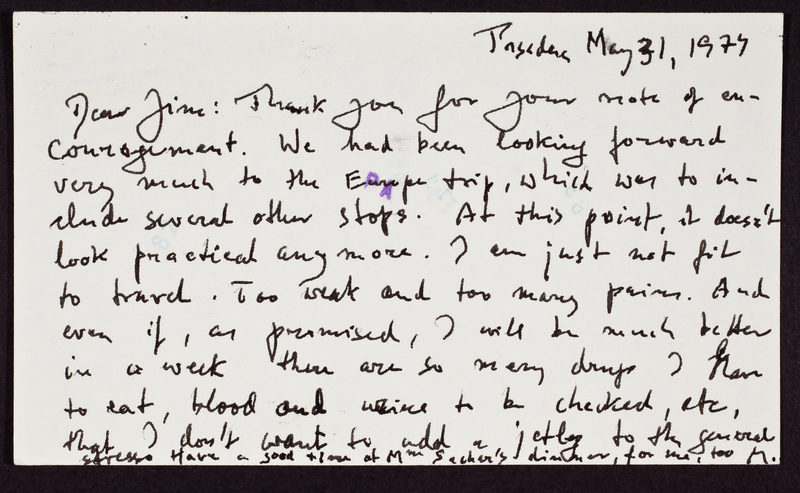 Pasadena May 31, 1979
Dear Jim: Thank you for your note of en-
couragement. We had been looking forward
very much to the Europe trip, which was to in-
clude several other stops. At this point, it doesn't
look practical anymore. I am just not fit
to travel. Too weak and too many pains. And
even if, as promised, I will be much better
in a week there are so many drugs I have
to eat, blood and urine to be checked, etc,
that I don't want to add a jetlag to the general
stress. Have a good time at Mme Sacher's dinner, for me, too M.
PA